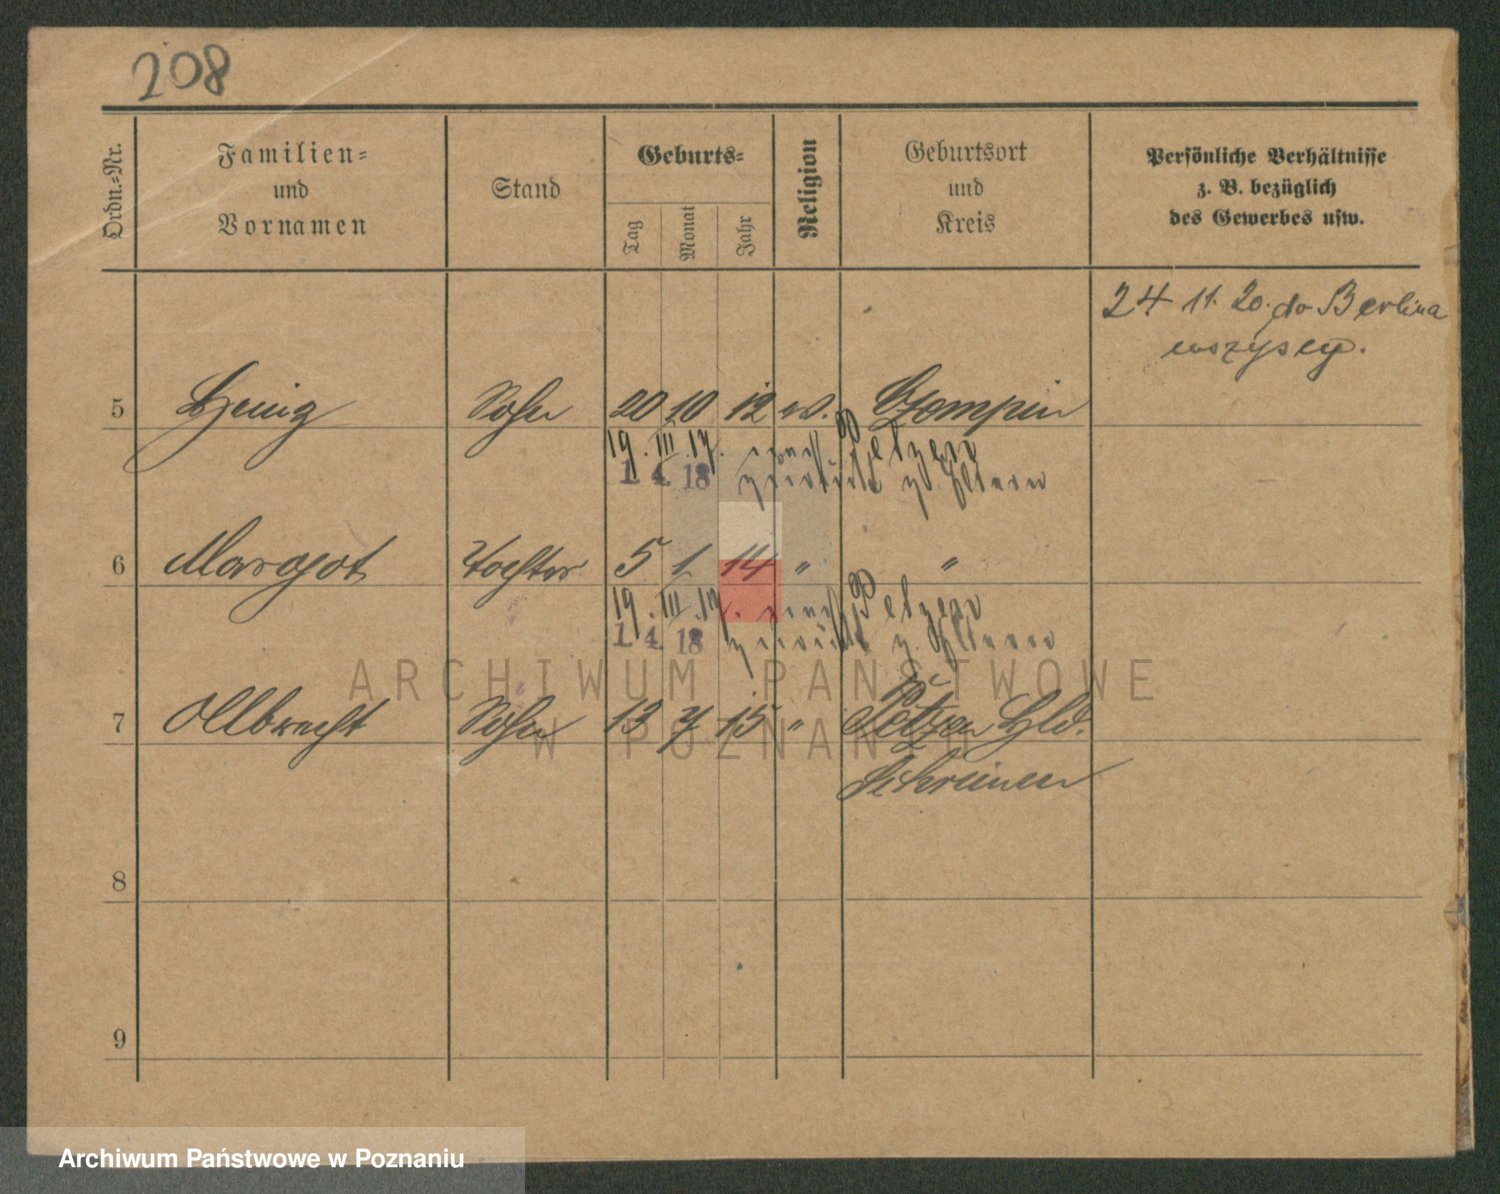 208
Ordn.-Nr.
Familien-
und
Vornamen
Stand
Geburts-
Tag
Monat
Jahr
Religion
Geburtsort
und
Kreis
Persönliche Verhältnisse
z. B. bezüglich
des Gewerbes usw.
24 11. 20. do Berlina
5 Sohn 20 10 12 ev. Czempin
19. III. 17.
1. 4. 18 z. Eltern
6 Margot Tochter 5 1 14 " "
19. III. 17.
1. 4. 18 z. Eltern
7 Albrecht Sohn 13 7 15 " Hld.
8
9
ARCHIWUM PAŃSTWOWE
W POZNANIU
Archiwum Państwowe w Poznaniu